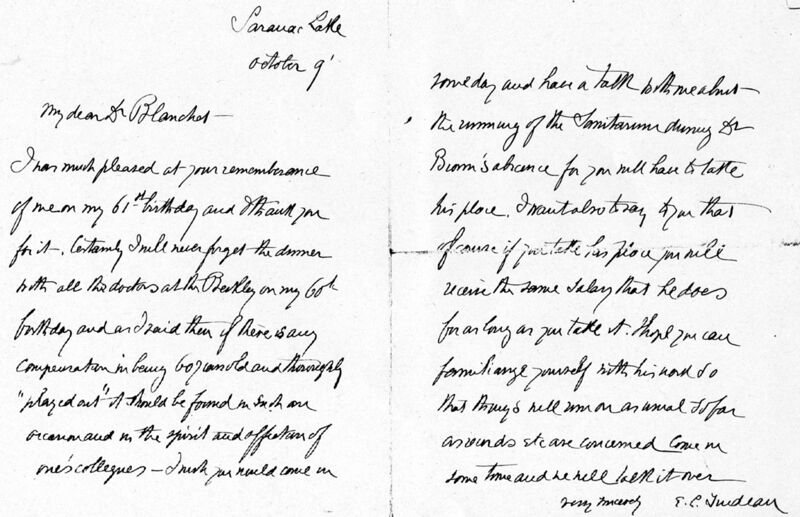 Saranac Lake
October 9'
My dear Dr Blanchet —
I was much pleased at your remembrance
of me on my 61st birthday and I thank you
for it. Certainly I will never forget the dinner
with all the doctors at the Berkley on my 60th
birthday and as I said then if there is any
compensation in being 60 years old and thoroughly
"played out" it should be found in such an
occasion and in the spirit and affection of
one's collegues — I wish you would come in
someday and have a talk with me about
the running of the Sanitarium during Dr
Brown's absence for you will have to take
his place. I want also to say to you that
of course if you take his place you will
receive the same salary that he does
for as long as you take it. I hope you can
familiarize yourself with his work so
that things will run on as usual so far
as records etc are concerned Come in
some time and we will talk it over
very sincerely E. L. Trudeau